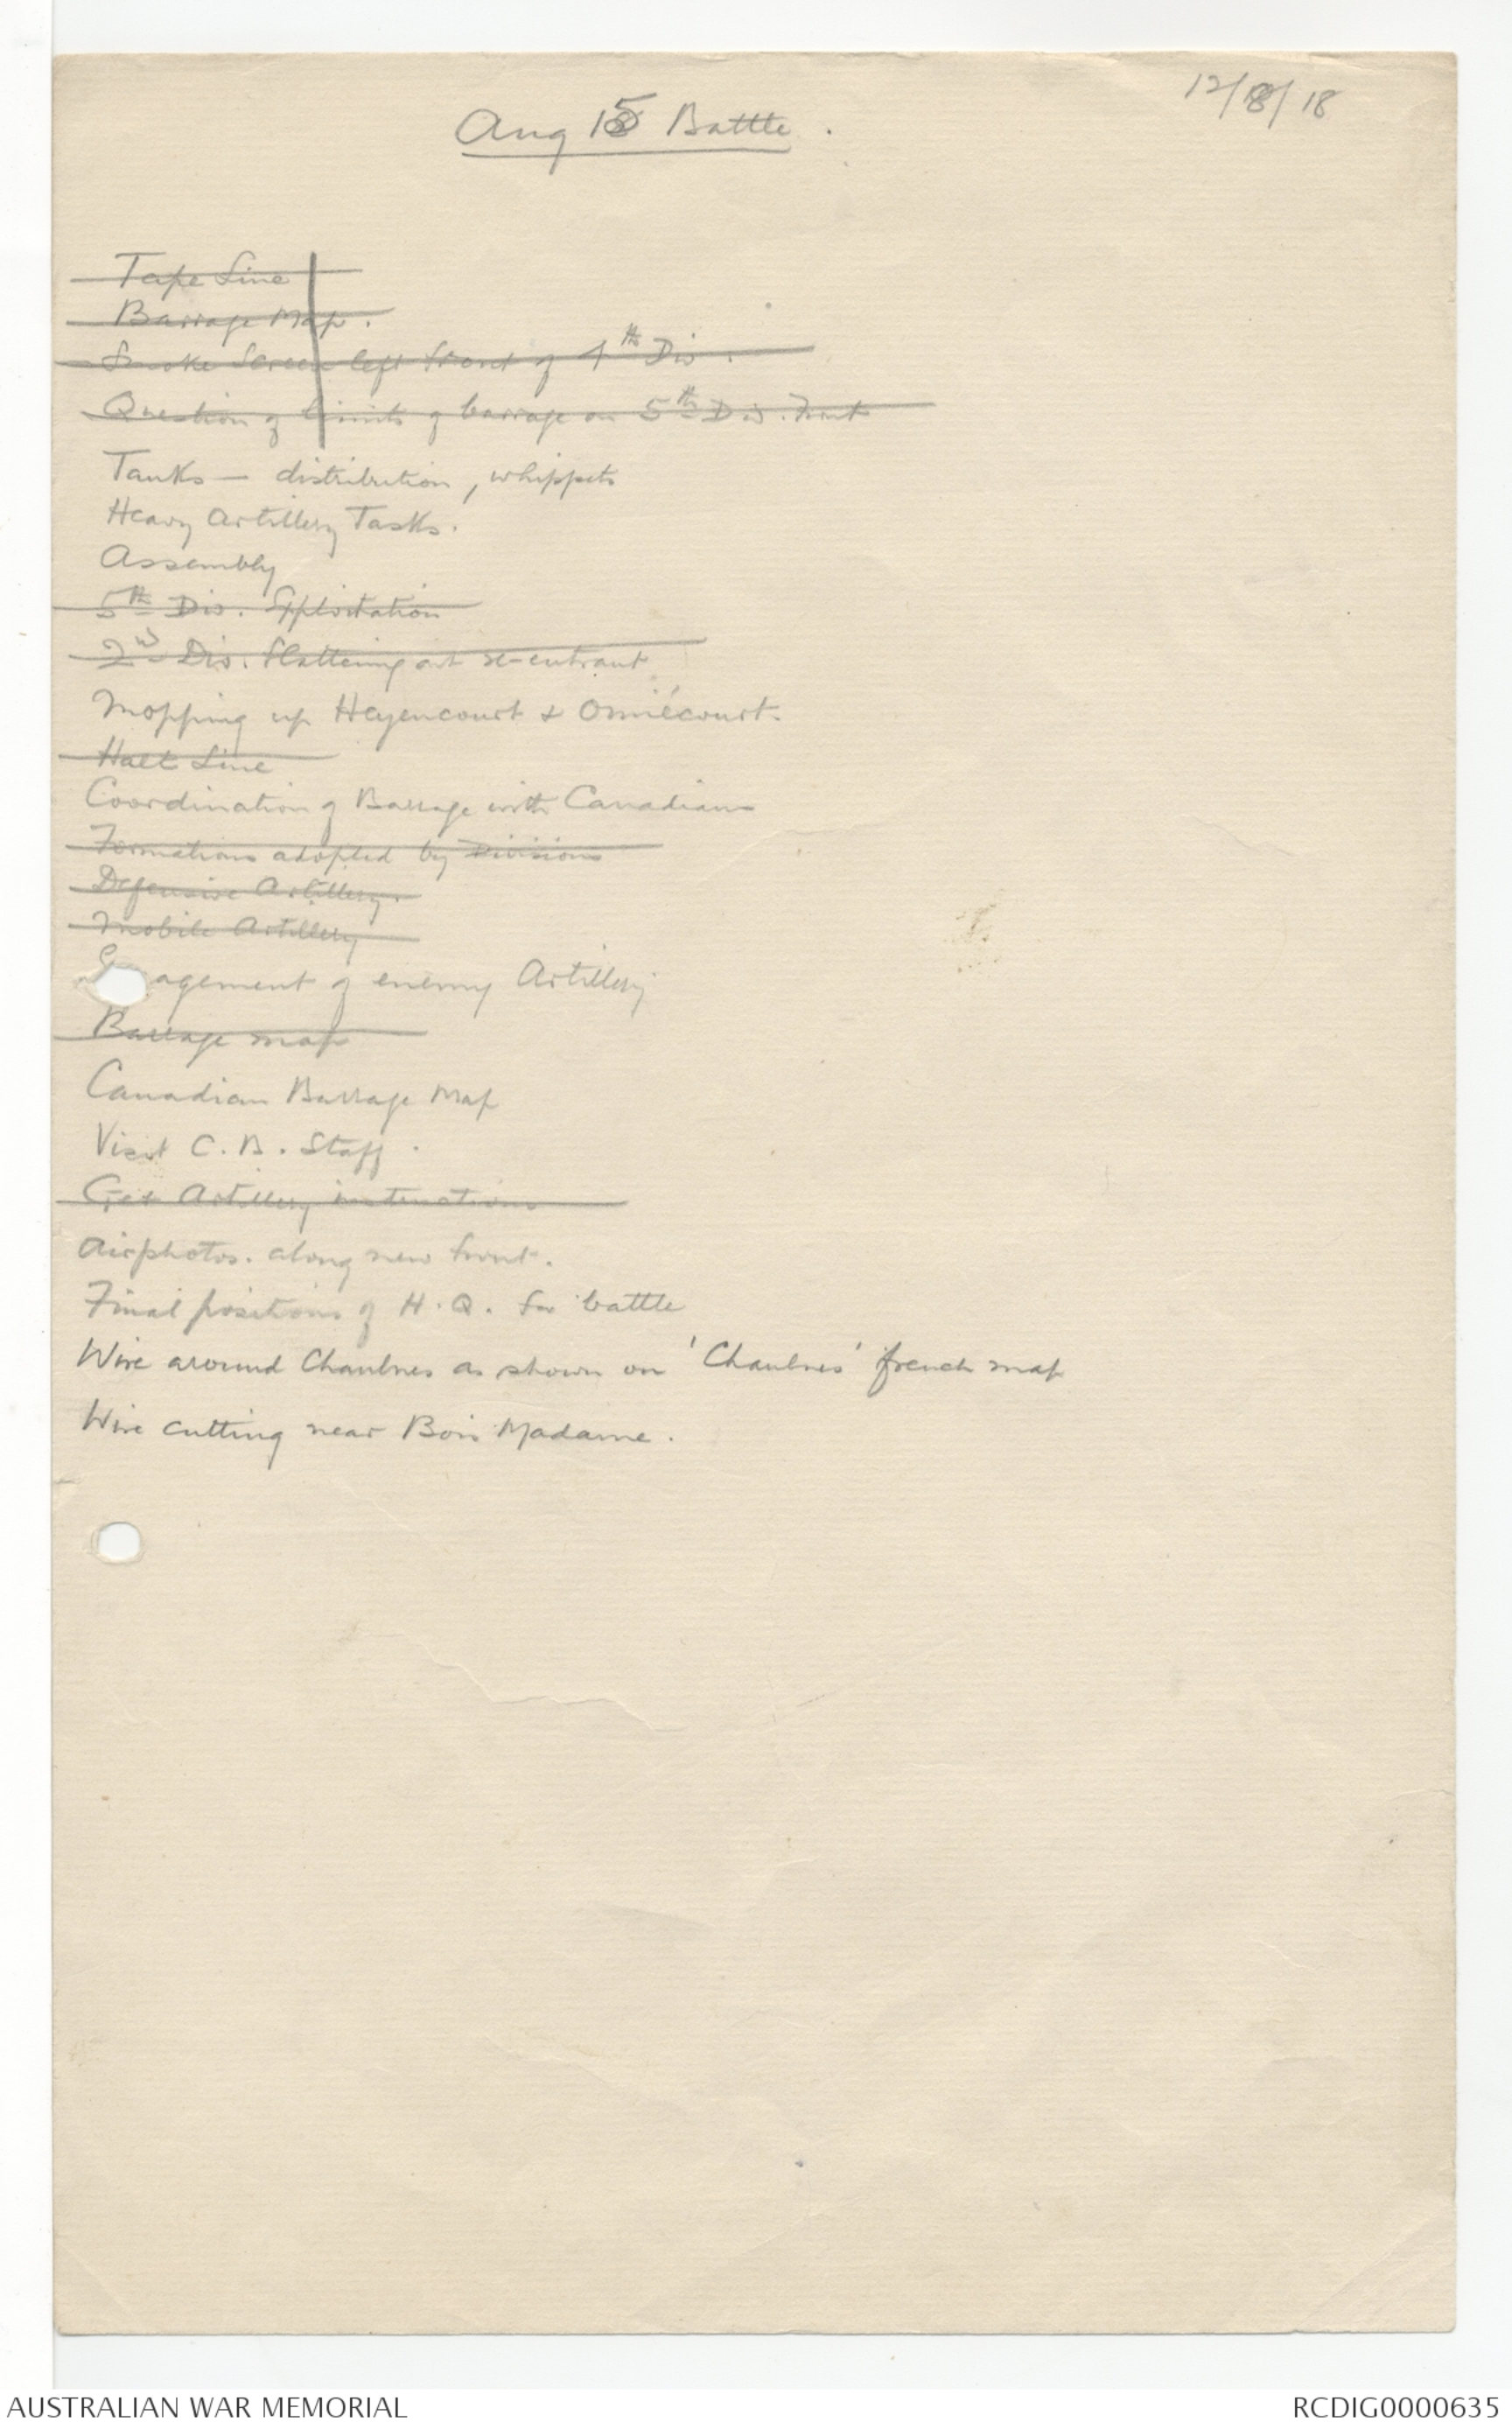 12/8/18
Aug 15 Battle.
Tape Line
Barrage Map.
Smoke Screen left front of 4th Div.
Question of limits of barrage on 5th Div. front
Tanks — distribution, whippets
Heavy Artillery Tasks.
Assembly
5th Div. Exploitation
2nd Div. flattening out re-entrant
Mopping up Heyencourt & Omiécourt.
Halt Line
Coordination of Barrage with Canadians
Formations adopted by Divisions
Defensive Artillery.
Mobile Artillery
agement of enemy Artillery
Barrage map
Canadian Barrage Map
Visit C.B. Staff.
Get Artillery instructions
Airphotos. along new front.
Final positions of H.Q. for battle
Wire around Chaulnes as shown on 'Chaulnes' french map
Wire cutting near Bois Madame.
AUSTRALIAN WAR MEMORIAL
RCDIG0000635